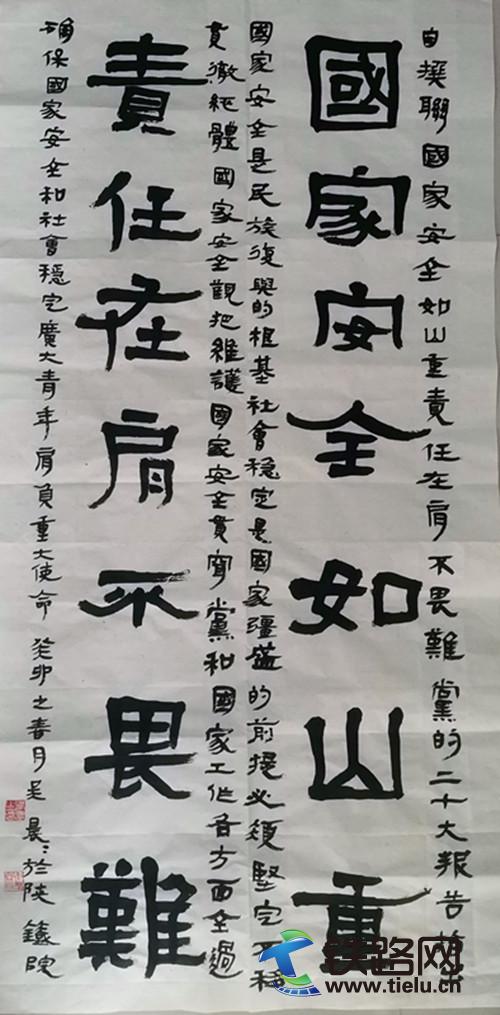 自撰聯國家安全如山重責任在肩不畏難黨的二十大報告
國家安全如山重
國家安全是民族復興的根基社會穩定是國家彊盛的前提必須堅定不移
貫徹總體國家安全觀把維護國家安全貫穿黨和國家工作各方面全過
責任在肩不畏難
確保國家安全和社會穩定廣大青年肩負重大使命 癸卯之春月吴晨晨於陝鐵院
铁路网
www.tielu.cn